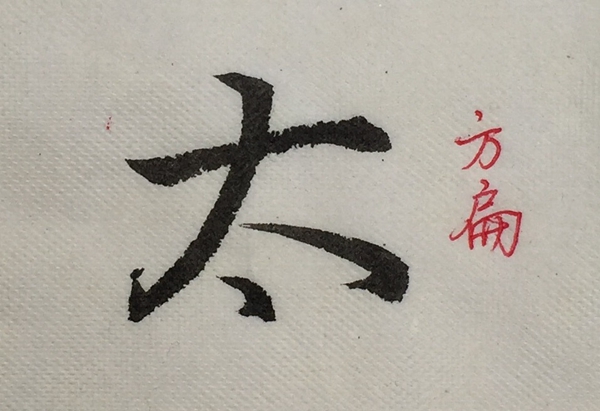 太
方扁